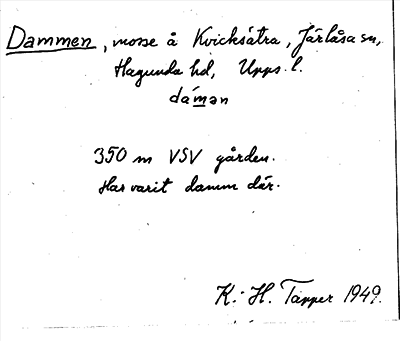 Dammen, mosse å Kvicksätra, Järlåsa sn,
Hagunda hd, Upps. l.
dámən
350 m VSV gården.
Har varit damm där.
K.-H. Tapper 1949.